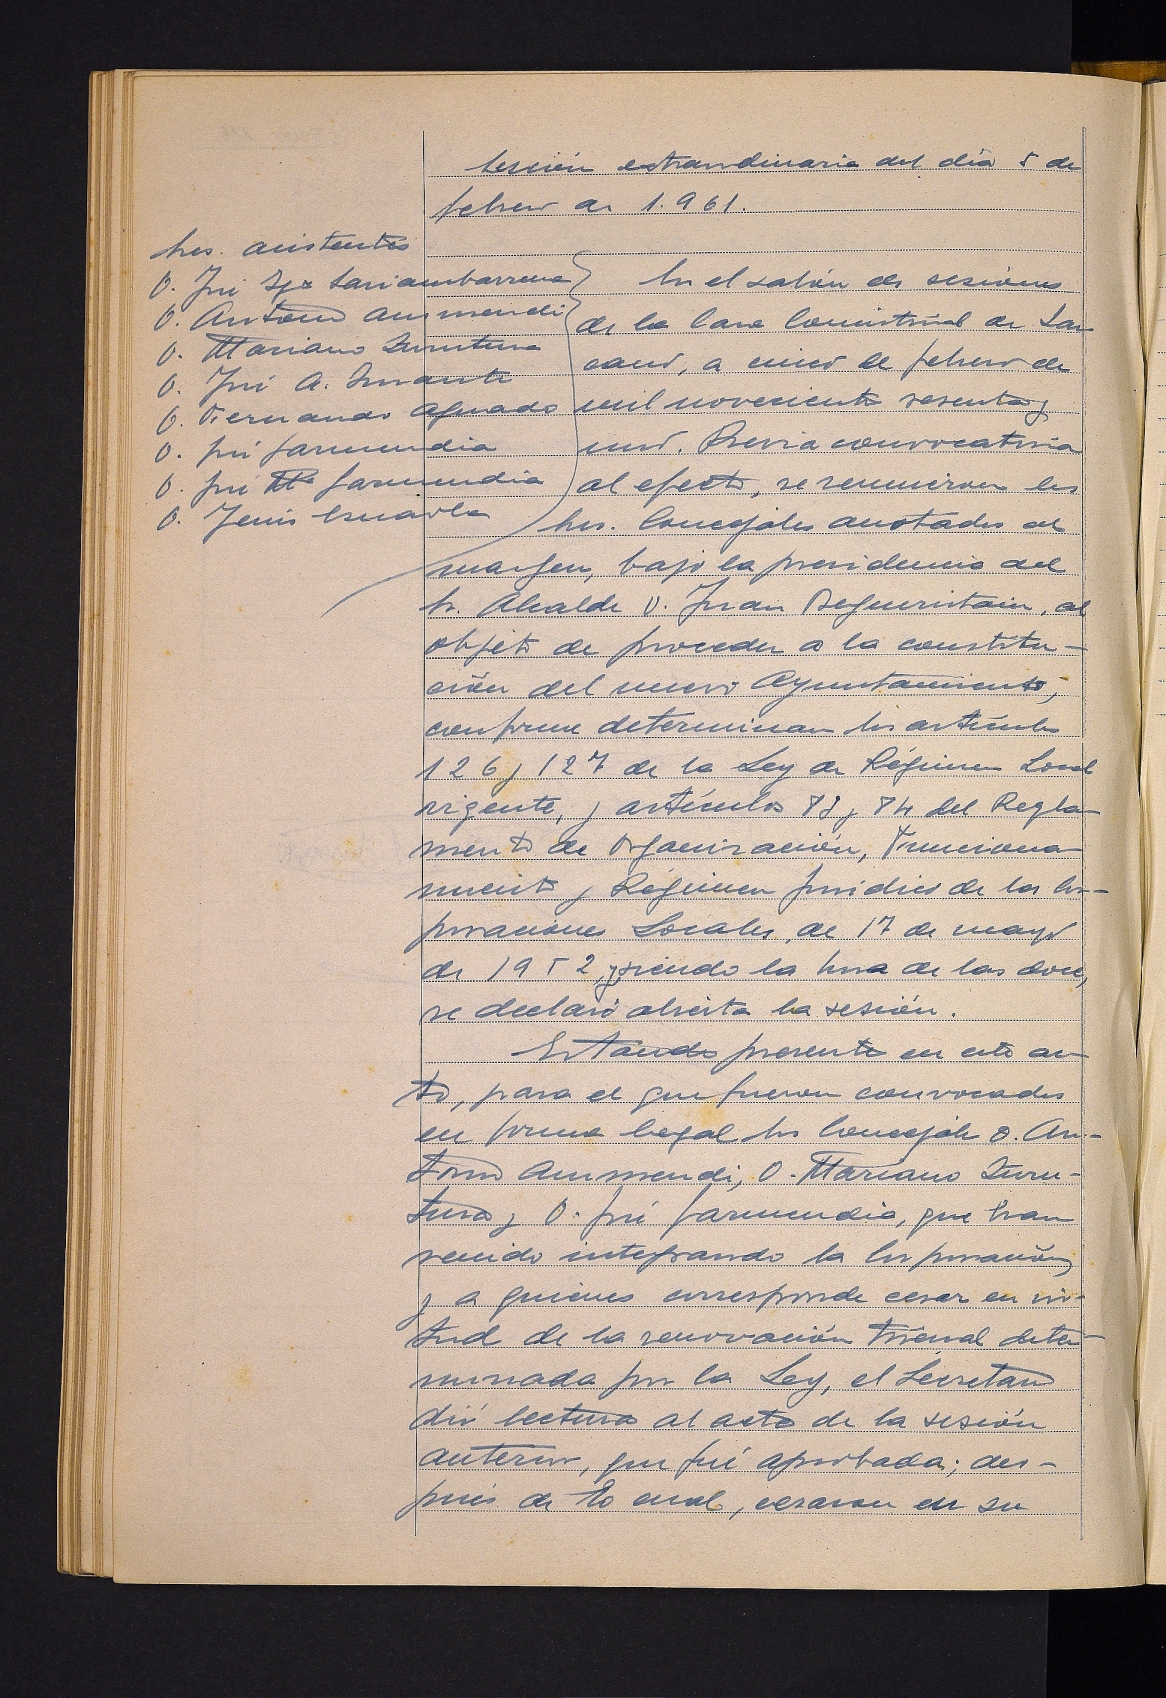 Sesión extraordinaria del día 5 de
febrero de 1.961.
Sres. asistentes
D. José Igº Lariambarrena
D. Antonio Aurmendi
D. Mariano Irureture
D. José A. Insausti
D. Fernando Aguado
D. José Garmendia
D. José Mª Garmendia
D. Jesús Esnaola
En el salón de sesiones
de la Casa Consistorial de Laz-
cano, a cinco de febrero de
mil novecientos sesenta y
uno. Previa convocatoria
al efecto, se reunieron los
Sres. Concejales anotados al
margen, bajo la presidencia del
Sr. Alcalde D. Juan Beguiristain, al
objeto de proceder a la constitu-
ción del nuevo Ayuntamiento,
conforme determinan los artículos
126 y 127 de la Ley de Régimen Local
vigente, y artículos 83 y 84 del Regla-
mento de Organización, Funciona-
miento y Régimen Jurídico de las Cor-
poraciones Locales, de 17 de mayo
de 1952, y siendo la hora de las doce,
se declaró abierta la sesión.
Estando presente en este ac-
to, para el que fueron convocados
en forma legal los Concejales D. An-
tonio Aurmendi, D. Mariano Iru-
tura y D. José Garmendia, que han
venido integrando la Corporación,
y a quienes corresponde cesar en vir-
tud de la renovación trienal deter-
minada por la Ley, el Secretario
dió lectura al acta de la sesión
anterior, que fué aprobada; des-
pués de lo cual, cesaron en su